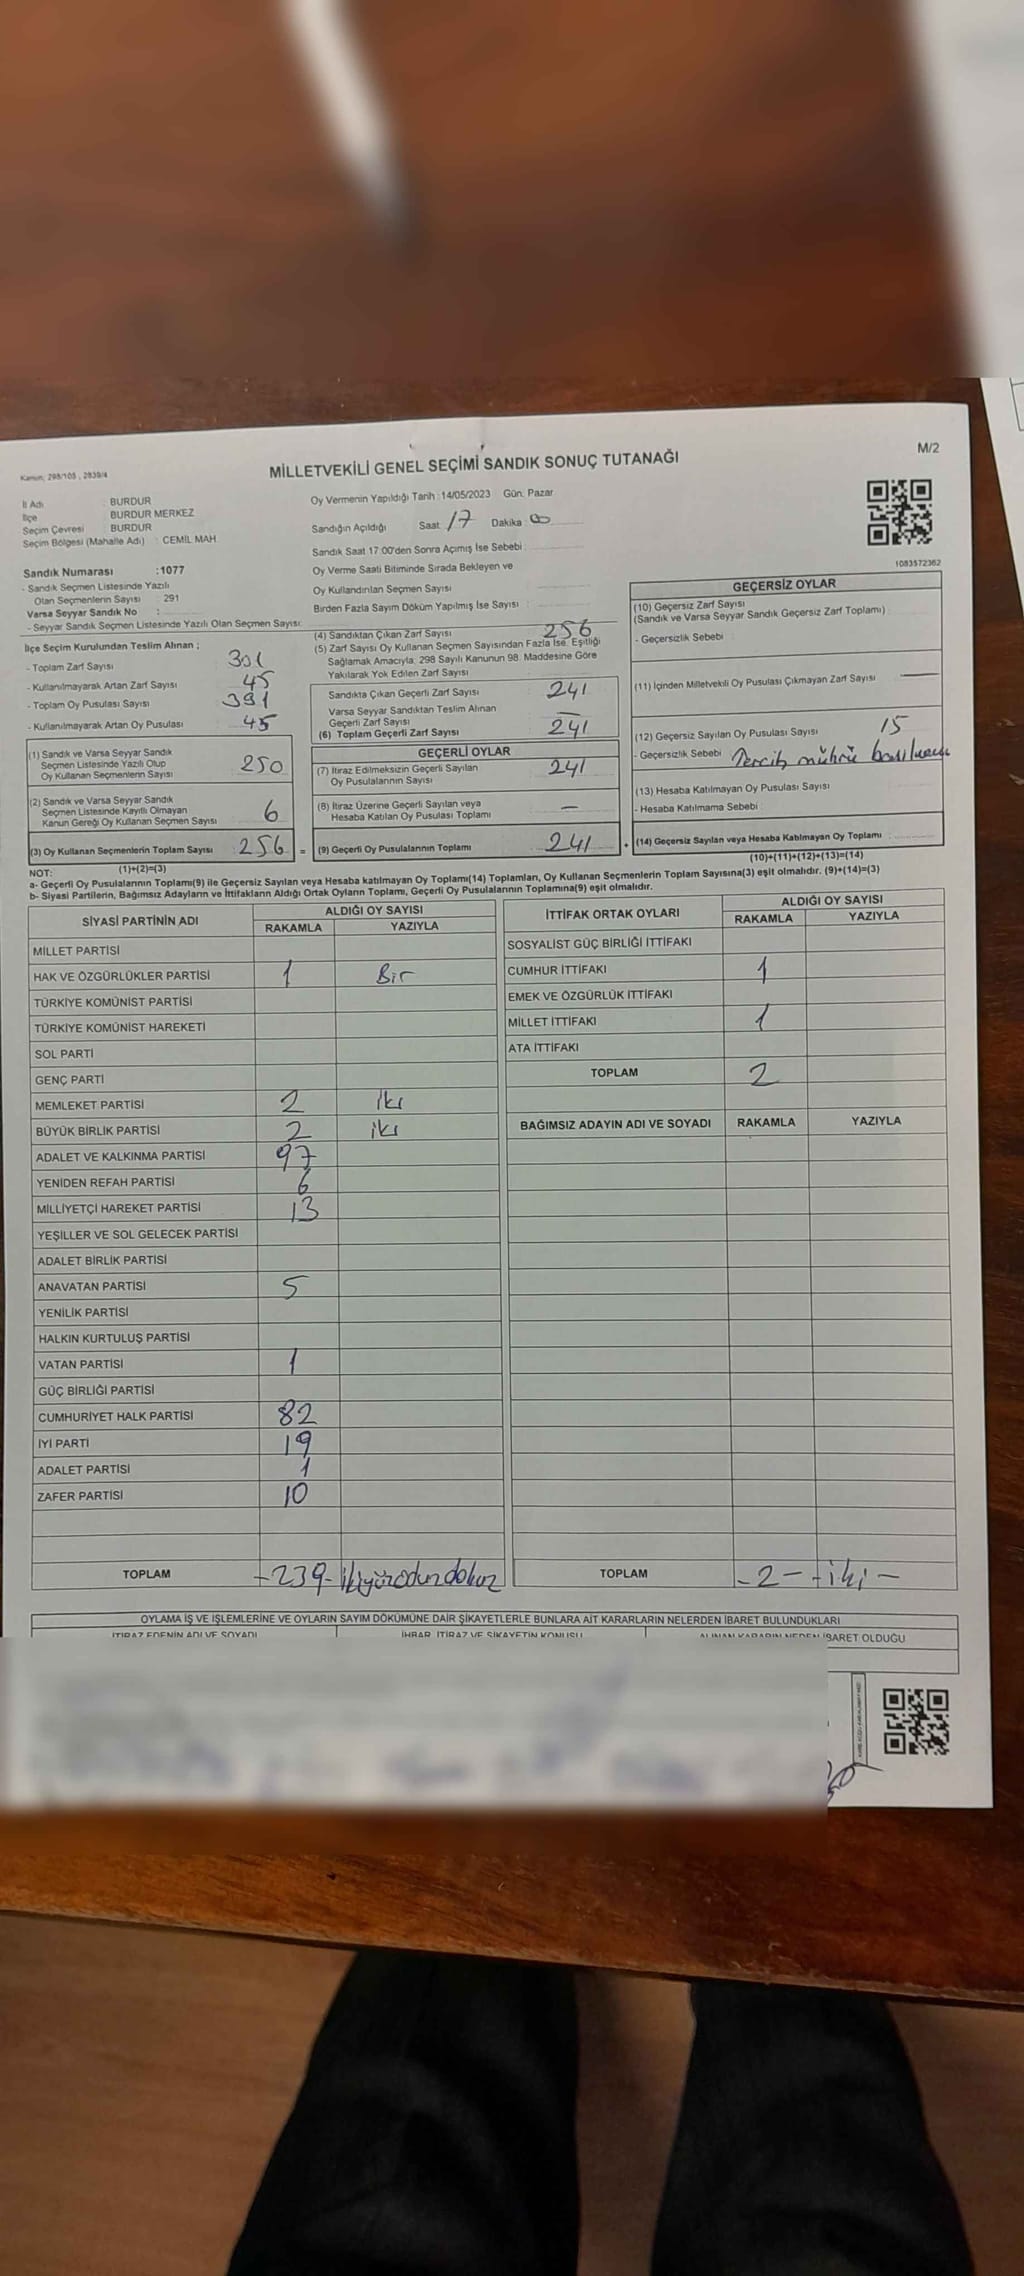 Kanun; 298/105 , 2839/4
M/2
MİLLETVEKİLİ GENEL SEÇİMİ SANDIK SONUÇ TUTANAĞI
İl Adı : BURDUR
İlçe : BURDUR MERKEZ
Seçim Çevresi : BURDUR
Seçim Bölgesi (Mahalle Adı) : CEMİL MAH.
Sandık Numarası :1077
- Sandık Seçmen Listesinde Yazılı
Olan Seçmenlerin Sayısı : 291
Varsa Seyyar Sandık No :
- Seyyar Sandık Seçmen Listesinde Yazılı Olan Seçmen Sayısı:
Oy Vermenin Yapıldığı Tarih :14/05/2023 Gün: Pazar
Sandığın Açıldığı Saat 17 Dakika 00
Sandık Saat 17:00'den Sonra Açımış İse Sebebi :
Oy Verme Saati Bitiminde Sırada Bekleyen ve
Oy Kullandırılan Seçmen Sayısı :
Birden Fazla Sayım Döküm Yapılmış İse Sayısı :
1083572362
İlçe Seçim Kurulundan Teslim Alınan ;
- Toplam Zarf Sayısı 301
- Kullanılmayarak Artan Zarf Sayısı 45
- Toplam Oy Pusulası Sayısı
- Kullanılmayarak Artan Oy Pusulası 45
(1) Sandık ve Varsa Seyyar Sandık
Seçmen Listesinde Yazılı Olup
Oy Kullanan Seçmenlerin Sayısı : 250
(2) Sandık ve Varsa Seyyar Sandık
Seçmen Listesinde Kayıtlı Olmayan
Kanun Gereği Oy Kullanan Seçmen Sayısı : 6
(3) Oy Kullanan Seçmenlerin Toplam Sayısı : 256 =
(1)+(2)=(3)
(4) Sandıktan Çıkan Zarf Sayısı : 256
(5) Zarf Sayısı Oy Kullanan Seçmen Sayısından Fazla İse: Eşitliği
Sağlamak Amacıyla, 298 Sayılı Kanunun 98. Maddesine Göre
Yakılarak Yok Edilen Zarf Sayısı :
Sandıkta Çıkan Geçerli Zarf Sayısı : 241
Varsa Seyyar Sandıktan Teslim Alınan
Geçerli Zarf Sayısı : —
(6) Toplam Geçerli Zarf Sayısı : 241
GEÇERLİ OYLAR
(7) İtiraz Edilmeksizin Geçerli Sayılan
Oy Pusulalarının Sayısı : 241
(8) İtiraz Üzerine Geçerli Sayılan veya
Hesaba Katılan Oy Pusulası Toplamı : —
(9) Geçerli Oy Pusulalarının Toplamı : 241 +
GEÇERSİZ OYLAR
(10) Geçersiz Zarf Sayısı
(Sandık ve Varsa Seyyar Sandık Geçersiz Zarf Toplamı) :
- Geçersizlik Sebebi :
(11) İçinden Milletvekili Oy Pusulası Çıkmayan Zarf Sayısı : —
(12) Geçersiz Sayılan Oy Pusulası Sayısı : 15
- Geçersizlik Sebebi : Tercih mührü
(13) Hesaba Katılmayan Oy Pusulası Sayısı :
- Hesaba Katılmama Sebebi :
(14) Geçersiz Sayılan veya Hesaba Katılmayan Oy Toplamı :
(10)+(11)+(12)+(13)=(14)
NOT:
a- Geçerli Oy Pusulalarının Toplamı(9) ile Geçersiz Sayılan veya Hesaba katılmayan Oy Toplamı(14) Toplamları, Oy Kullanan Seçmenlerin Toplam Sayısına(3) eşit olmalıdır. (9)+(14)=(3)
b- Siyasi Partilerin, Bağımsız Adayların ve İttifakların Aldığı Ortak Oyların Toplamı, Geçerli Oy Pusulalarının Toplamına(9) eşit olmalıdır.
SİYASİ PARTİNİN ADI ALDIĞI OY SAYISI
RAKAMLA YAZIYLA
MİLLET PARTİSİ
HAK VE ÖZGÜRLÜKLER PARTİSİ 1 Bir
TÜRKİYE KOMÜNİST PARTİSİ
TÜRKİYE KOMÜNİST HAREKETİ
SOL PARTİ
GENÇ PARTİ
MEMLEKET PARTİSİ 2 iki
BÜYÜK BİRLİK PARTİSİ 2 iki
ADALET VE KALKINMA PARTİSİ 97
YENİDEN REFAH PARTİSİ 6
MİLLİYETÇİ HAREKET PARTİSİ 13
YEŞİLLER VE SOL GELECEK PARTİSİ
ADALET BİRLİK PARTİSİ
ANAVATAN PARTİSİ 5
YENİLİK PARTİSİ
HALKIN KURTULUŞ PARTİSİ
VATAN PARTİSİ 1
GÜÇ BİRLİĞİ PARTİSİ
CUMHURİYET HALK PARTİSİ 82
İYİ PARTİ 19
ADALET PARTİSİ 1
ZAFER PARTİSİ 10
TOPLAM -239- ikiyüzotuzdokuz
İTTİFAK ORTAK OYLARI ALDIĞI OY SAYISI
RAKAMLA YAZIYLA
SOSYALİST GÜÇ BİRLİĞİ İTTİFAKI
CUMHUR İTTİFAKI 1
EMEK VE ÖZGÜRLÜK İTTİFAKI
MİLLET İTTİFAKI 1
ATA İTTİFAKI
TOPLAM 2
BAĞIMSIZ ADAYIN ADI VE SOYADI RAKAMLA YAZIYLA
TOPLAM -2- -iki-
OYLAMA İŞ VE İŞLEMLERİNE VE OYLARIN SAYIM DÖKÜMÜNE DAİR ŞİKAYETLERLE BUNLARA AİT KARARLARIN NELERDEN İBARET BULUNDUKLARI
İTİRAZ EDENİN ADI VE SOYADI İHBAR, İTİRAZ VE ŞİKAYETİN KONUSU ALINAN KARARIN NEDEN İBARET OLDUĞU